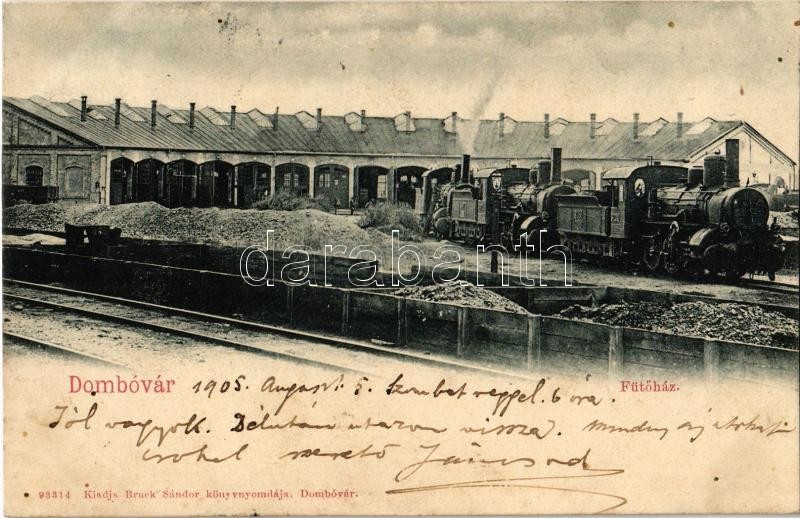 darabanth
Dombóvár
Fűtőház.
1905. August 5. Szombat reggel. 6 óra.
Jól vagyok. Délután utazom vissza.
csókol szerető
93314 Kiadja Bruck Sándor könyvnyomdája. Dombóvár.